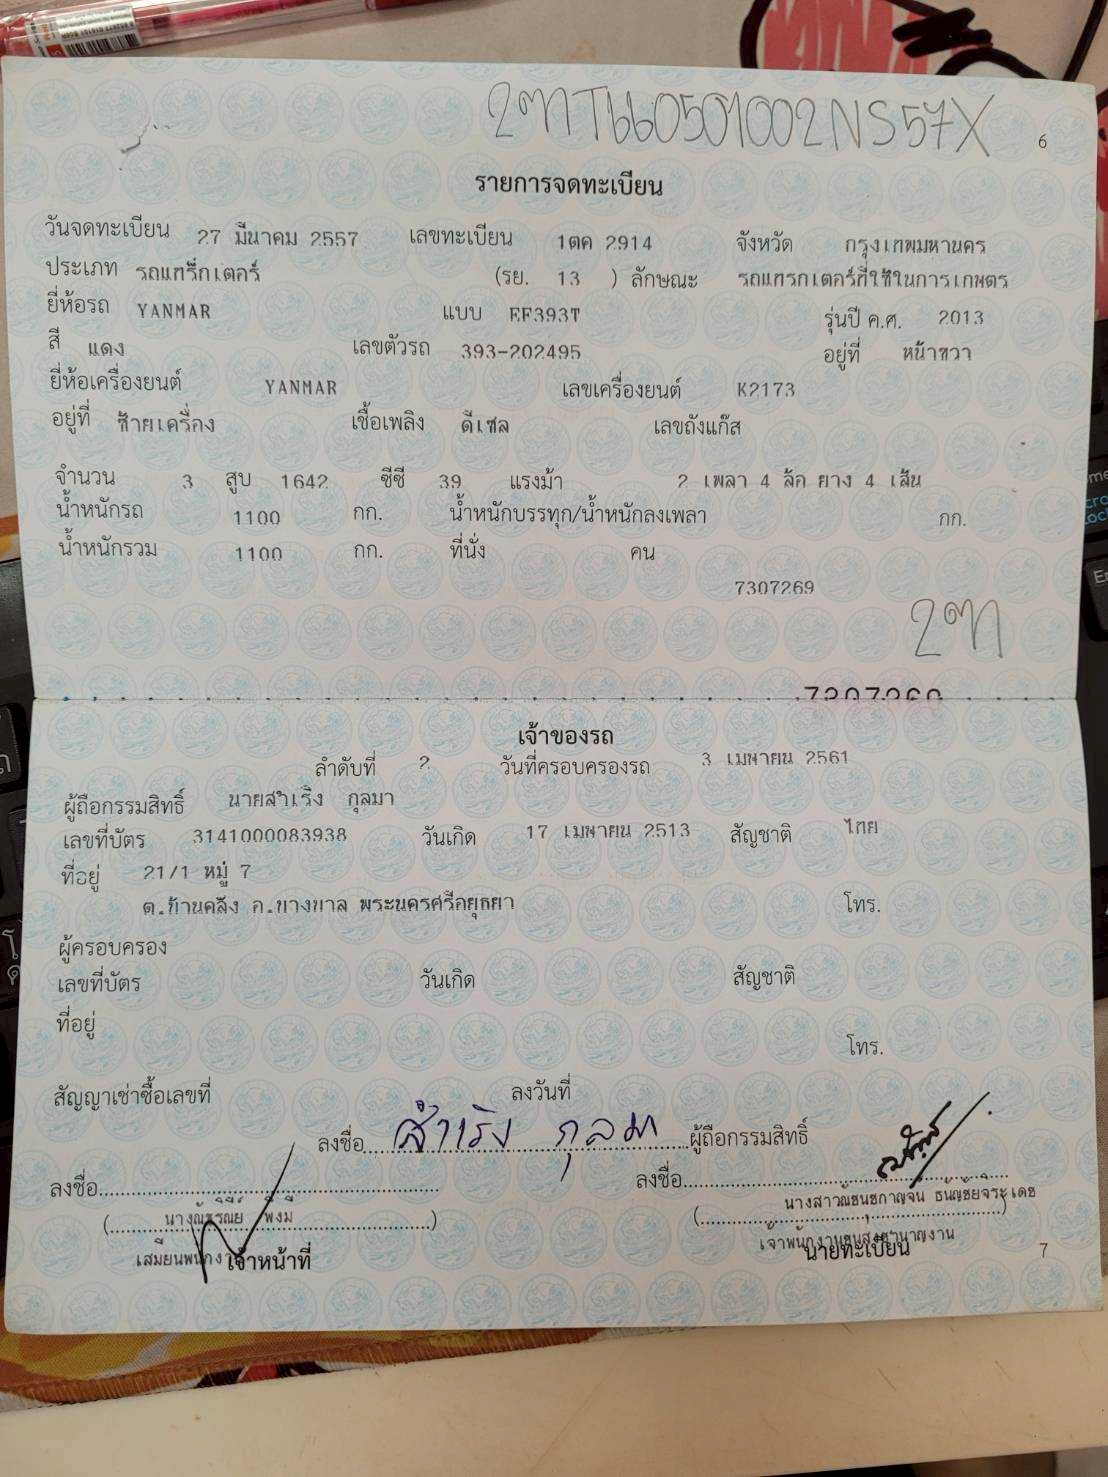 6
รายการจดทะเบียน
วันจดทะเบียน 27 มีนาคม 2557 เลขทะเบียน 1ตค 2914 จังหวัด กรุงเทพมหานคร
ประเภท รถแทร็กเตอร์ (รย. 13 ) ลักษณะ รถแทรกเตอร์ที่ใช้ในการเกษตร
ยี่ห้อรถ YANMAR แบบ EF393T รุ่นปี ค.ศ. 2013
สี แดง เลขตัวรถ 393-202495 อยู่ที่ หน้าขวา
ยี่ห้อเครื่องยนต์ YANMAR เลขเครื่องยนต์ K2173
อยู่ที่ ซ้ายเครื่อง เชื้อเพลิง ดีเซล เลขถังแก๊ส
จำนวน 3 สูบ 1642 ซีซี 39 แรงม้า 2 เพลา 4 ล้อ ยาง 4 เส้น
น้ำหนักรถ 1100 กก. น้ำหนักบรรทุก/น้ำหนักลงเพลา กก.
น้ำหนักรวม 1100 กก. ที่นั่ง คน
7307269
7307269
เจ้าของรถ
ลำดับที่ 2 วันที่ครอบครองรถ 3 เมษายน 2561
ผู้ถือกรรมสิทธิ์ นายสำเริง กุลมา
เลขที่บัตร 3141000083938 วันเกิด 17 เมษายน 2513 สัญชาติ ไทย
ที่อยู่ 21/1 หมู่ 7
ต.บ้านคลัง อ.บางบาล พระนครศรีอยุธยา โทร.
ผู้ครอบครอง
เลขที่บัตร วันเกิด สัญชาติ
ที่อยู่
โทร.
สัญญาเช่าซื้อเลขที่ ลงวันที่
ลงชื่อ สำเริง กุลมา ผู้ถือกรรมสิทธิ์
ลงชื่อ ลงชื่อ
เจ้าหน้าที่ นายทะเบียน
7